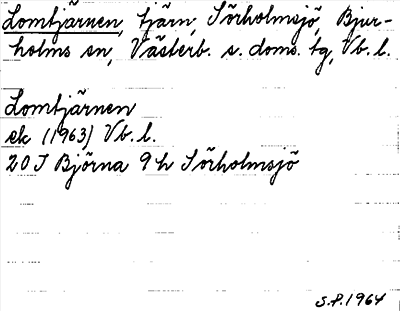 Lomtjärnen, tjärn, Sörholmsjö, Bjur-
holms sn, Västerb. s. doms. tg, Vb. l.
Lomtjärnen
ek (1963) Vb. l.
20 J Björna 9 h Sörholmsjö
S.P. 1964